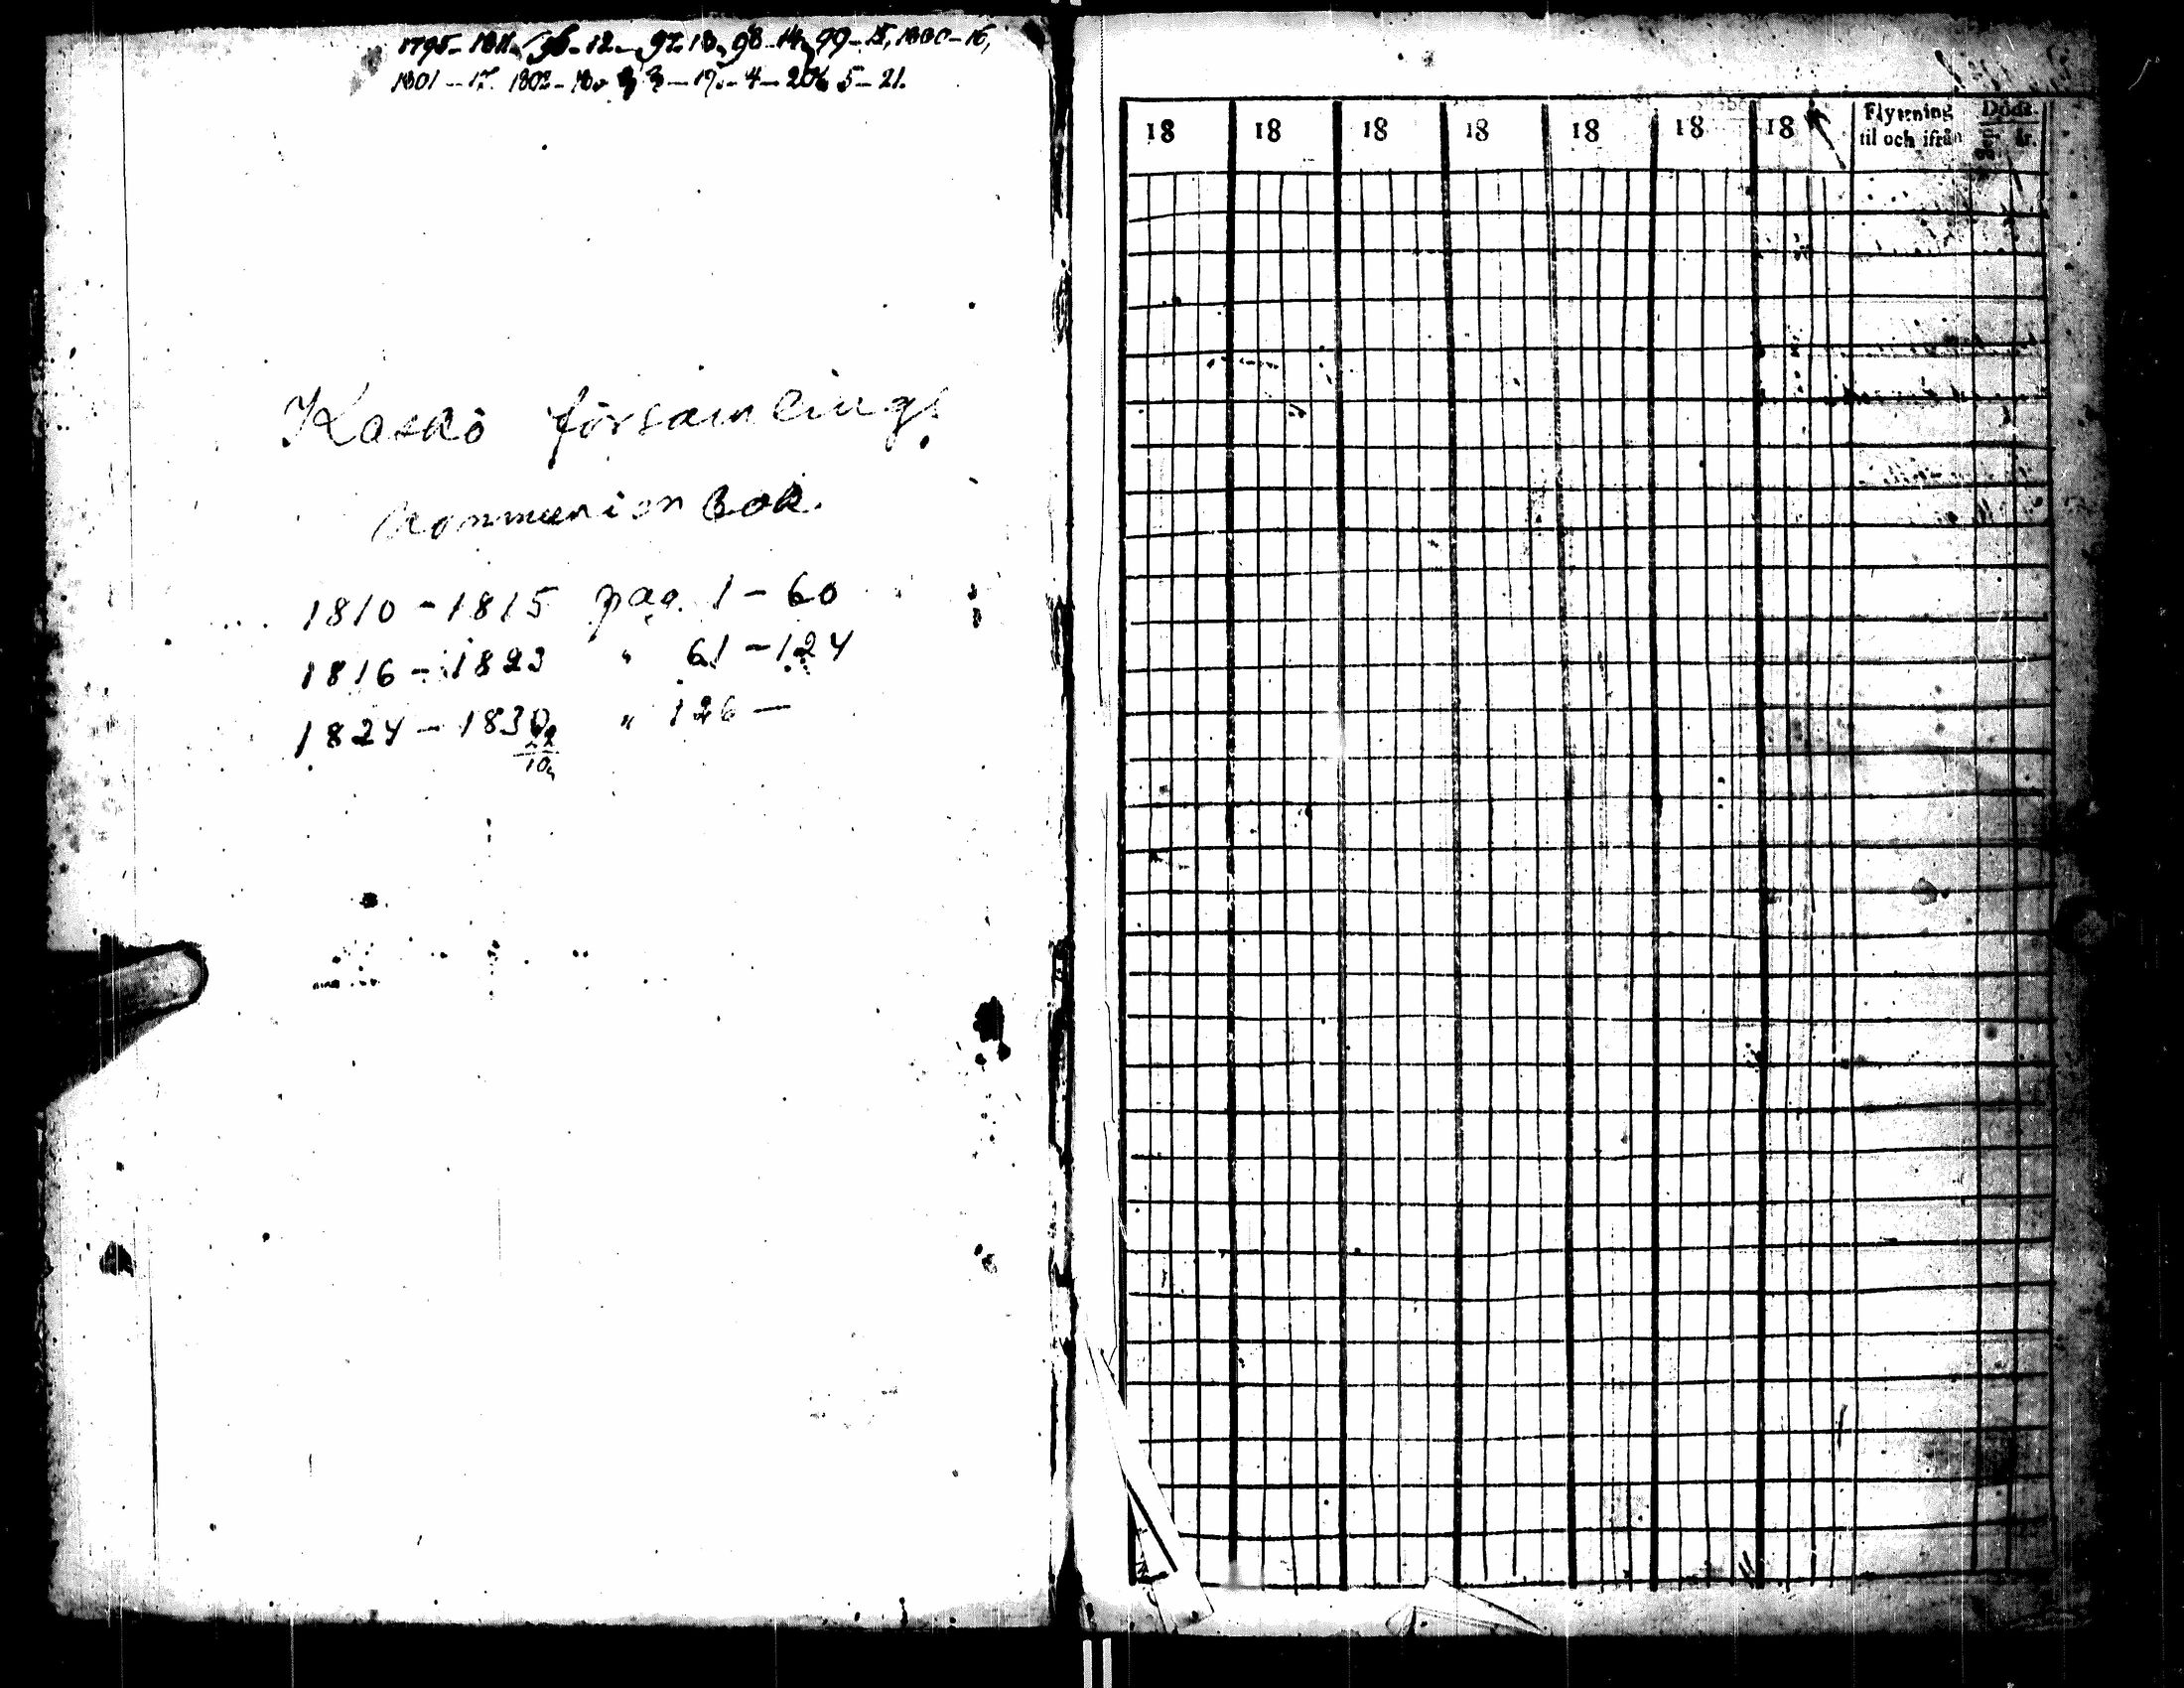 1795-1811, 96-12, 97-13, 98-14, 99-15, 1800-16,
1801-17. 1802-18. 3-19.-4-20, 5-21.
Kaskö församlings
kommunionbok.
1810-1815 pag. 1-60
1816-1823 " 61-124
1824-1830 " 126-
22
10
18 18 18 18 18 18 18 Flyttning Döds-
til och ifrån år.